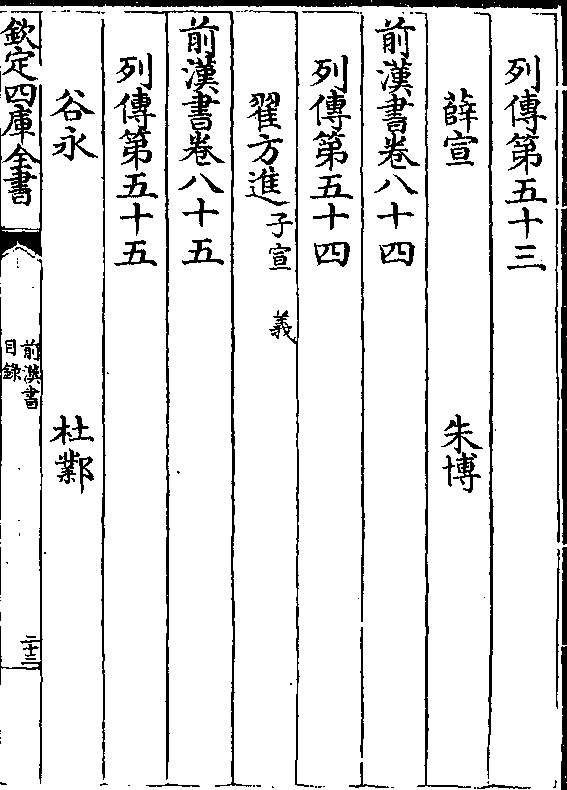 列傳第五十三
薛宣 朱博
前漢書卷八十四
列傳第五十四
翟方進 子宣 義
前漢書卷八十五
列傳第五十五
谷永 杜鄴
欽定四庫全書
前漢書
目錄
二十三